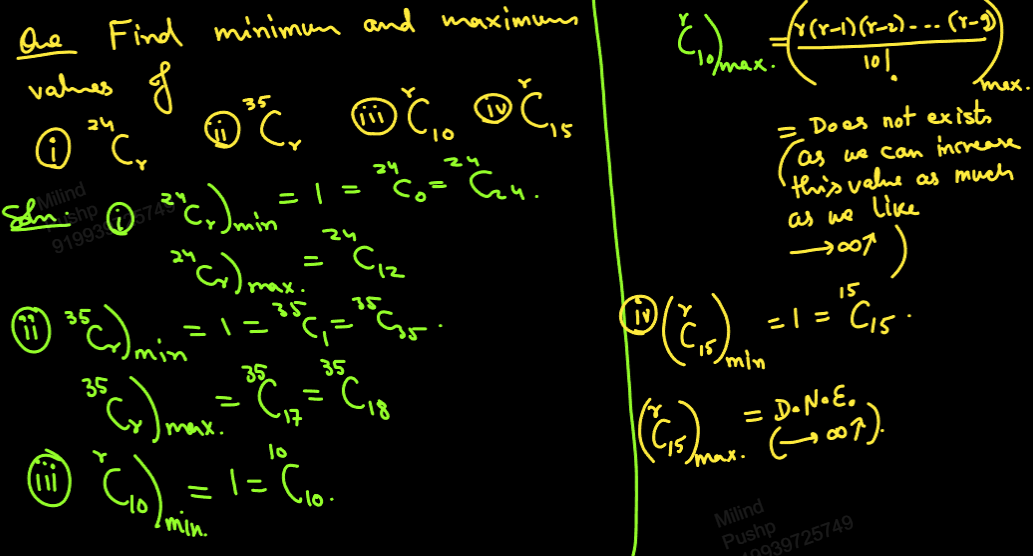 Que Find minimum and maximum
values of
(i) ²⁴Cᵣ (ii) ³⁵Cᵣ (iii) ʳC₁₀ (iv) ʳC₁₅
Soln: (i) ²⁴Cᵣ)min = 1 = ²⁴C₀ = ²⁴C₂₄.
²⁴Cᵣ)max. = ²⁴C₁₂
(ii) ³⁵Cᵣ)min = 1 = ³⁵C₁ = ³⁵C₃₅.
³⁵Cᵣ)max. = ³⁵C₁₇ = ³⁵C₁₈
(iii) ʳC₁₀)min. = 1 = ¹⁰C₁₀.
ʳC₁₀)max. = (r(r-1)(r-2)--...(r-9)/10!)max.
= Does not exists
(as we can increase
this value as much
as we like
⟶∞↑)
(iv) (ʳC₁₅)min = 1 = ¹⁵C₁₅.
(ʳC₁₅)max. = D.N.E.
(⟶∞↑).
Milind
Pushp
919939725749
Milind
Pushp
9939725749